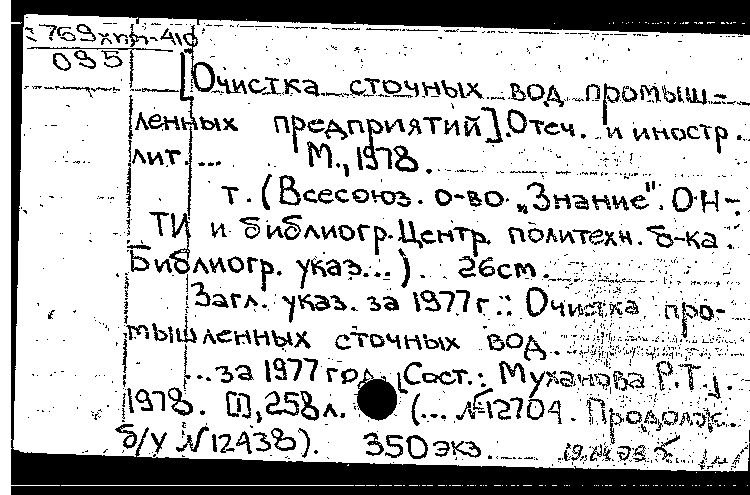 769хпп-410
095
[Очистка сточных вод промыш-
ленных предприятий]. Отеч. и иностр.
лит. ... М., 1978.
т. (Всесоюз. о-во „Знание". ОН-
ТИ и библиогр. Центр. политехн. б-ка.
Библиогр. указ...). 26см.
Загл. указ. за 1977г.: Очистка про-
мышленных сточных вод.
...за 1977 год. [Сост.: Муханова Р.Т.].
1978. [1], 258л. (... №12704. Продолж.
б/у №12438). 350экз.